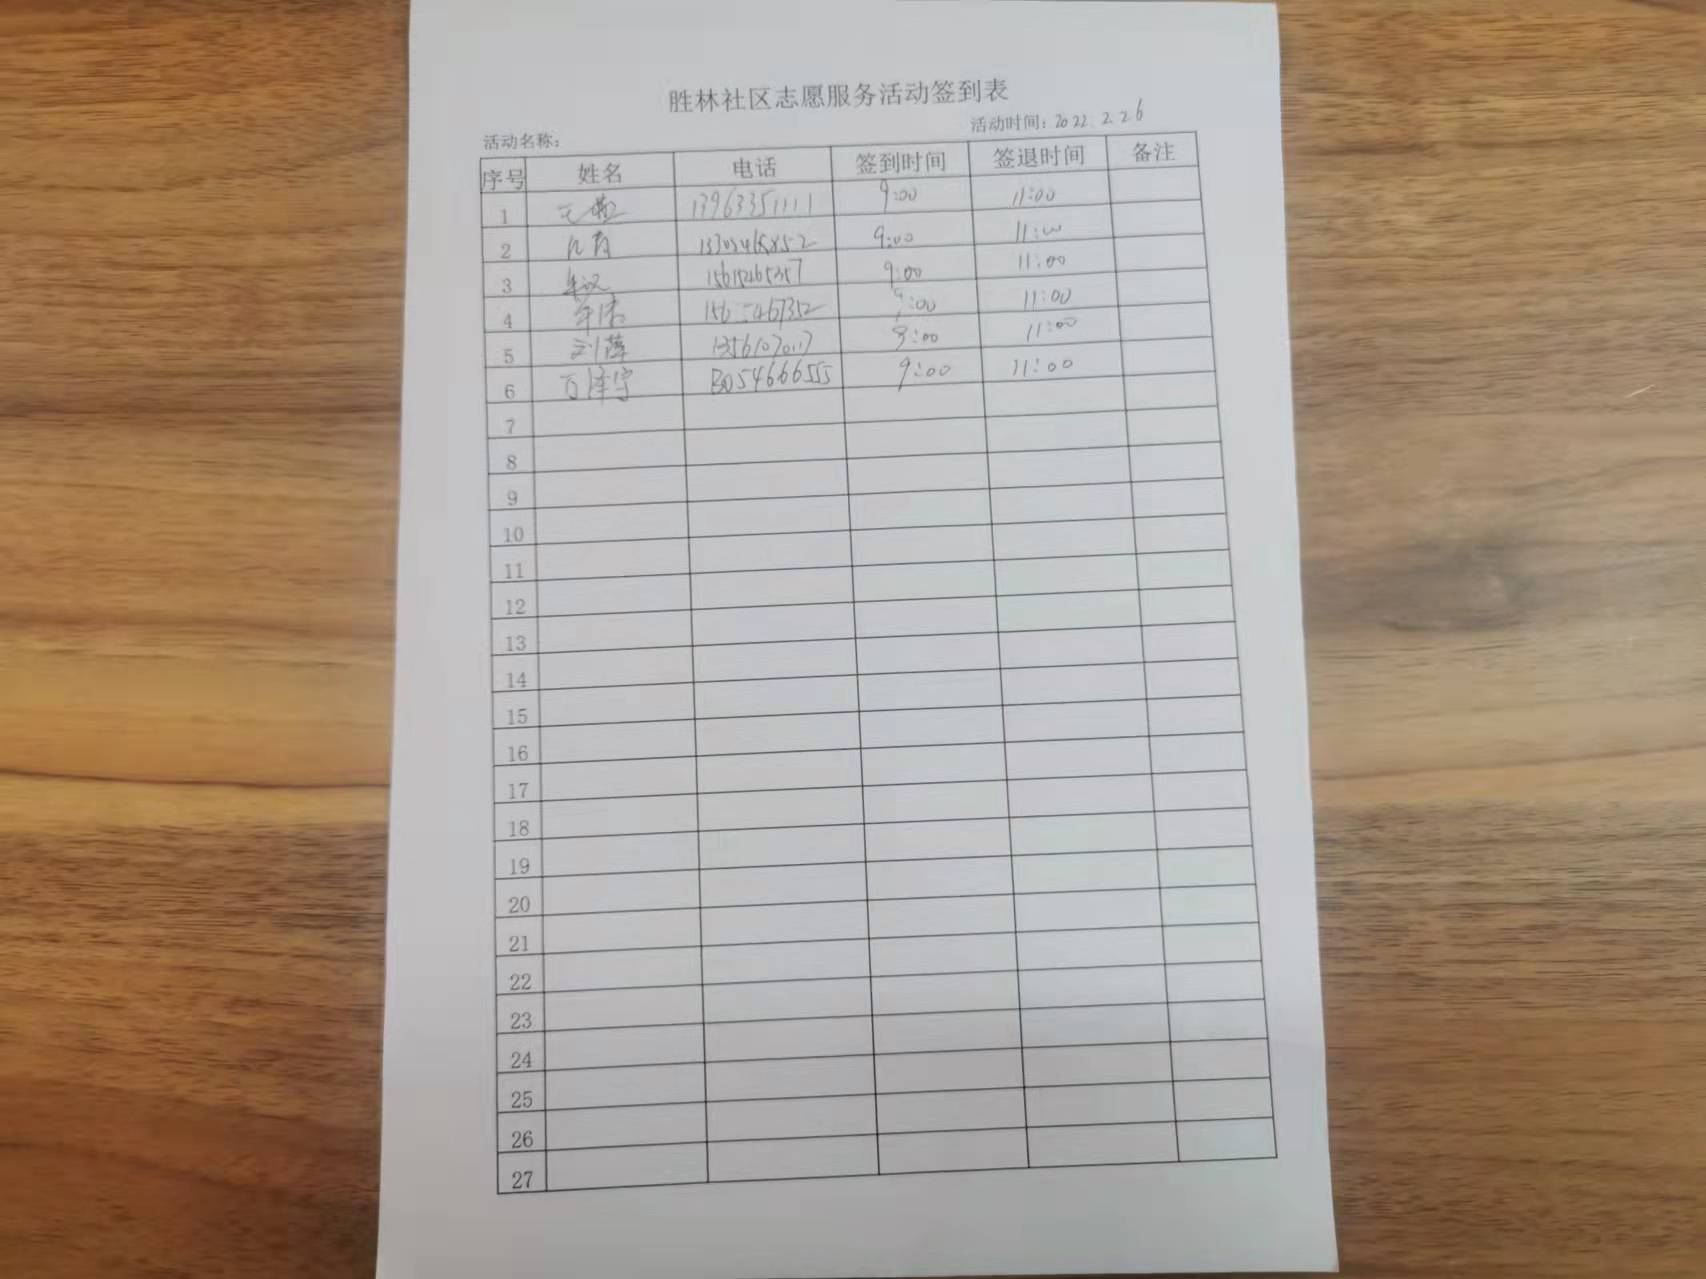 胜林社区志愿服务活动签到表
活动名称： 活动时间：2022.2.26
序号 姓名 电话 签到时间 签退时间 备注
1 13963351111 9:00 11:00
2 9:00 11:00
3 15615465357 9:00 11:00
4 9:00 11:00
5 刘萍 11:00
6 13054666555 9:00 11:00
7
8
9
10
11
12
13
14
15
16
17
18
19
20
21
22
23
24
25
26
27